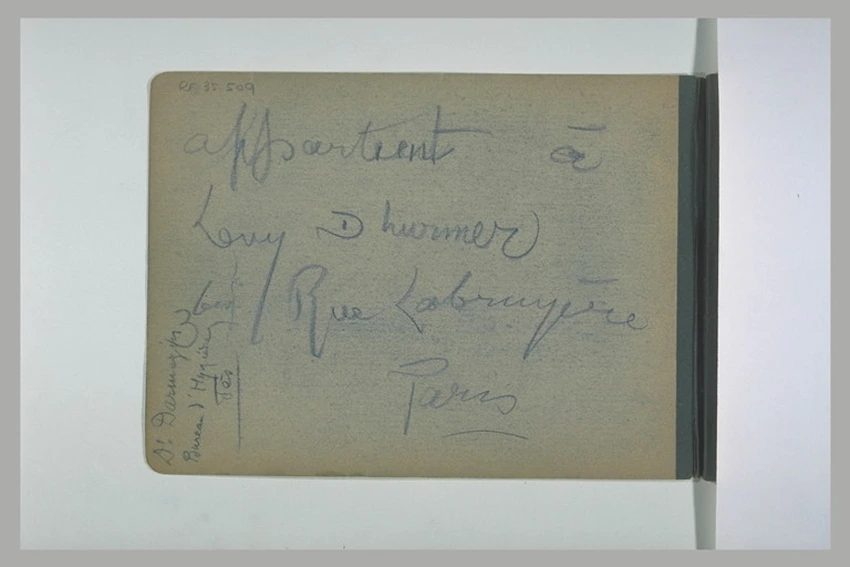 RF 35 509
appartient à
Levy Dhurmer
bis Rue Labruyère
Paris
Dr Darmezin
Bureau d'Hygiène